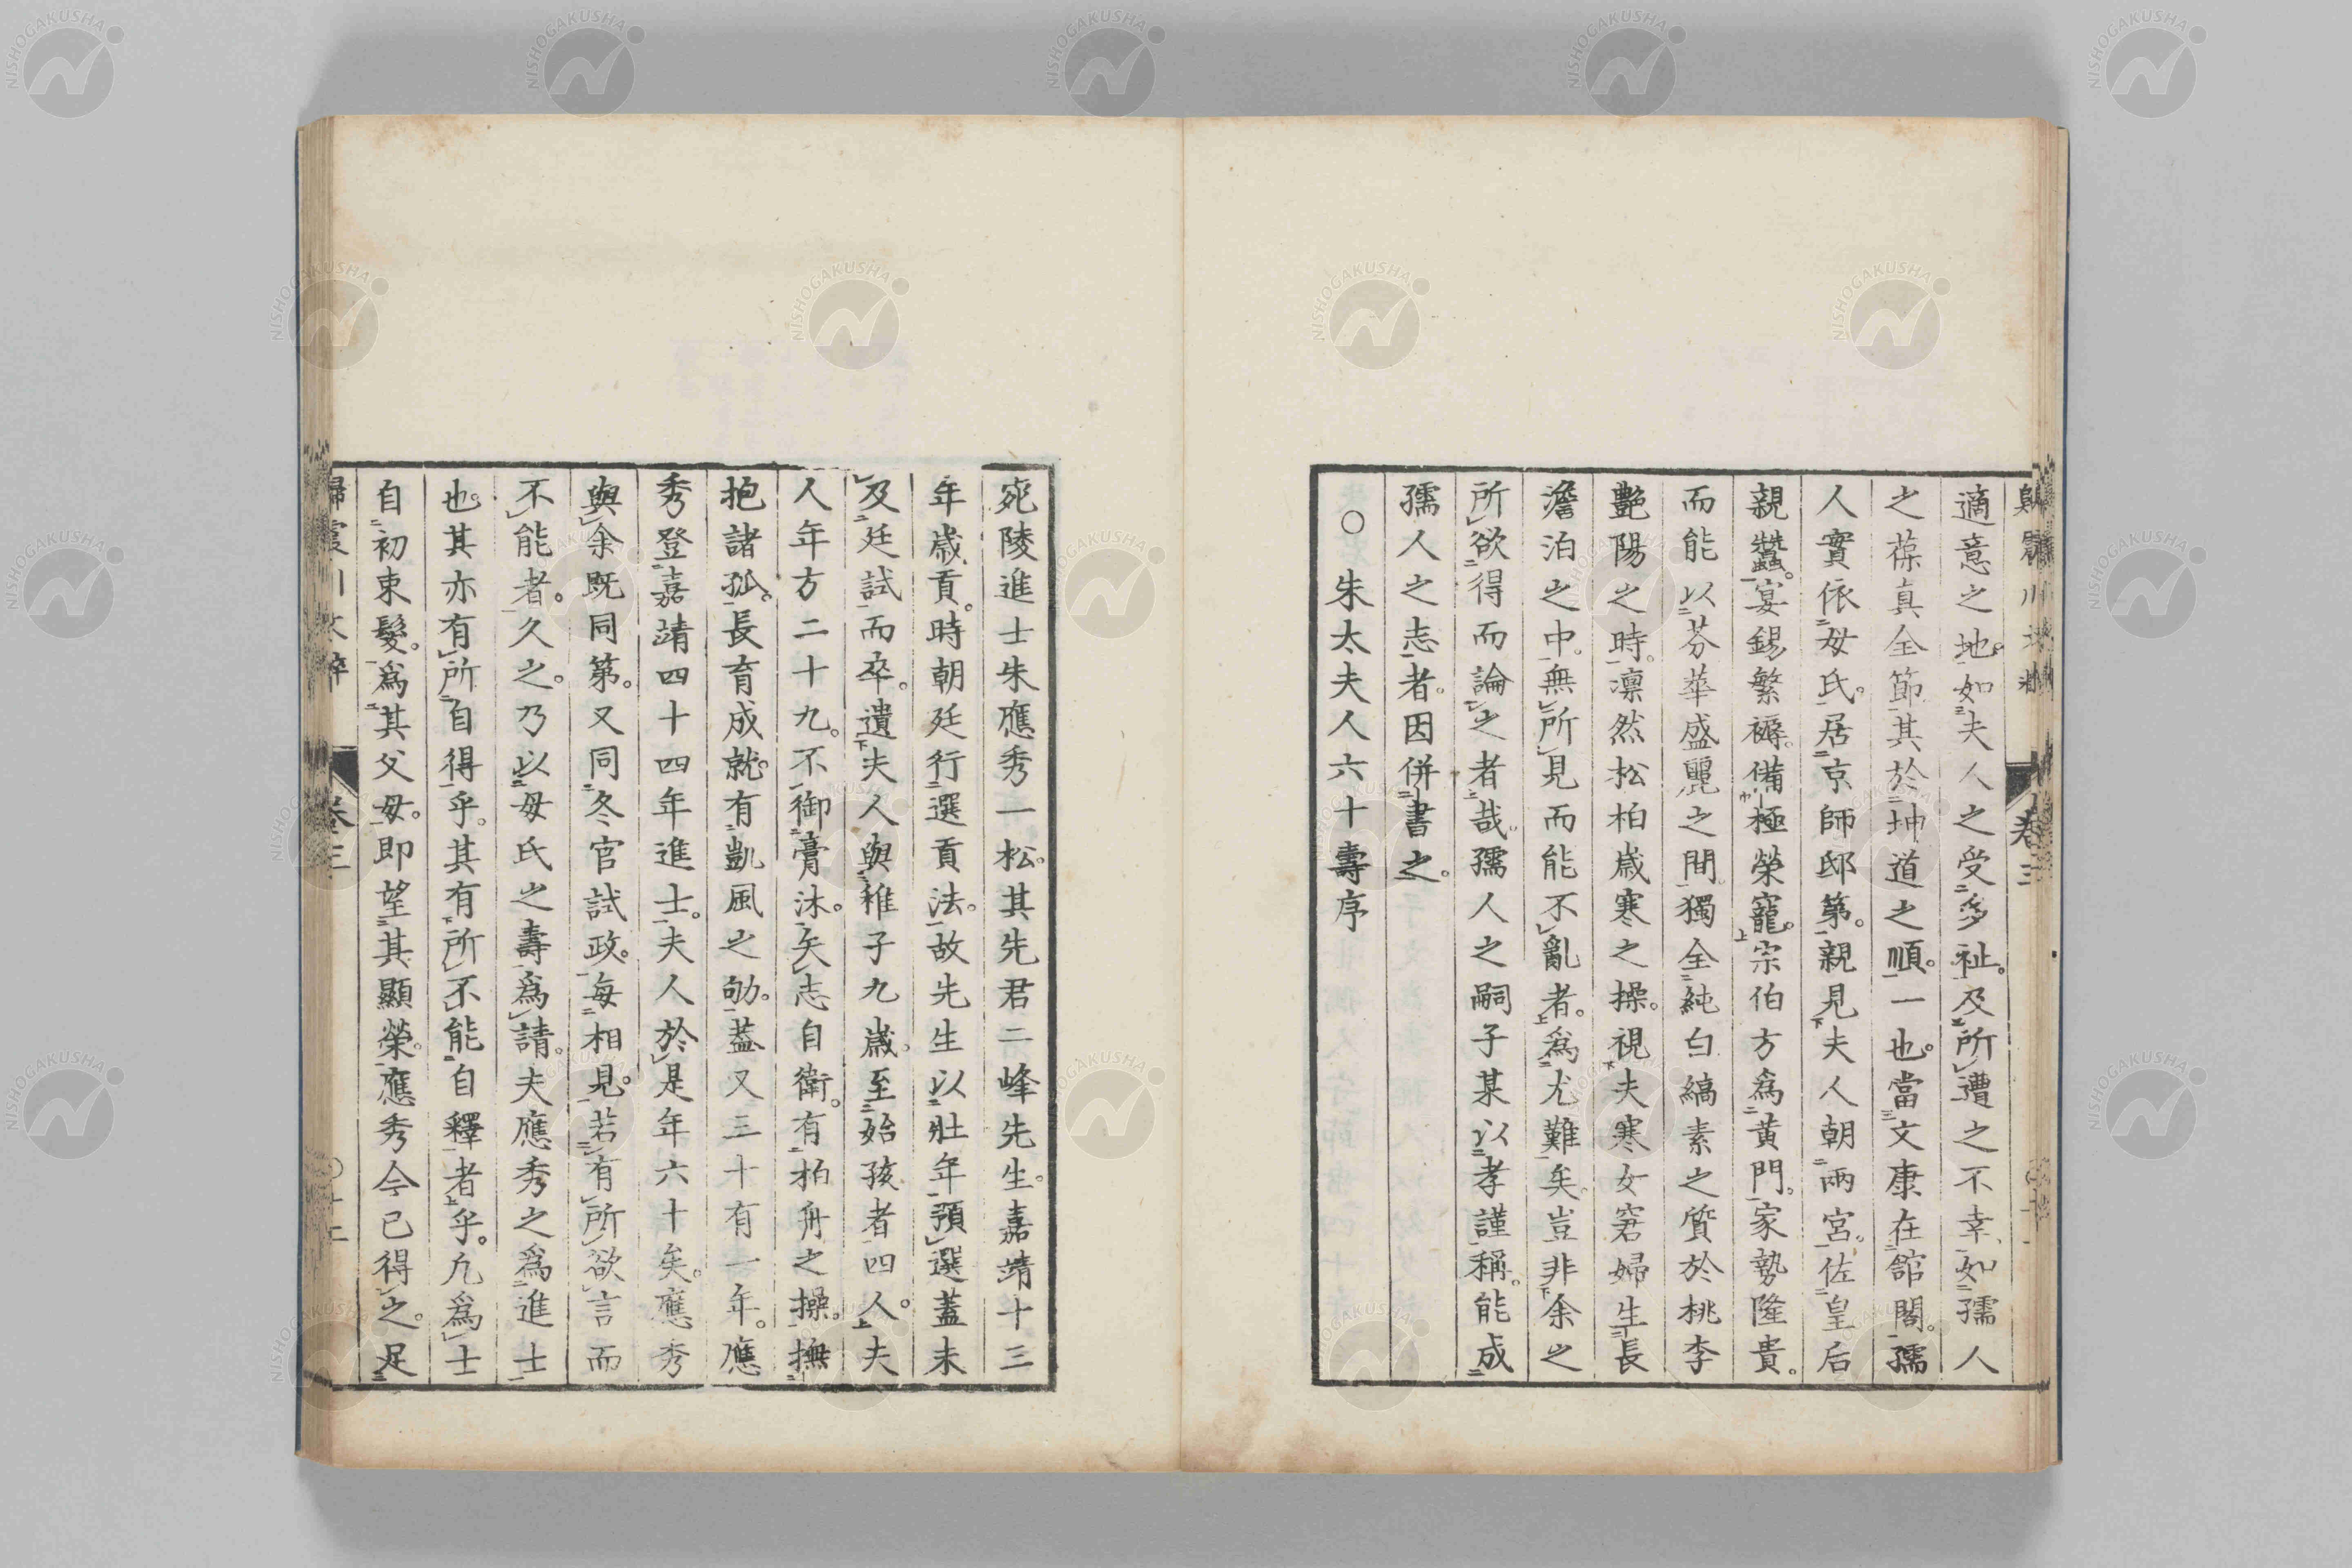 適意之地。如夫人之受多祉。及所遭之不幸、如孺人
之葆真全節其於坤道之順。一也。當文康在館閣。孺
人實依母氏。居京師邸第。親見夫人朝兩宮。佐皇后
親蠶。宴錫繁褥。備極榮寵。宗伯方爲黃門。家勢隆貴。
而能以芬華盛麗之間。獨全純白縞素之質於桃李
艷陽之時。凛然松柏歲寒之操。視夫寒女窘婦生長
澹泊之中。無所見而能不亂者。爲尤難矣。豈非余之
所欲得而論之者哉。孺人之嗣子某以孝謹稱。能成
孺人之志者。因併書之。
○朱太夫人六十壽序
宛陵進士朱應秀一松。其先君二峰先生。嘉靖十三
年歲貢。時朝廷行選貢法。故先生以壯年預選蓋未
及廷試而卒。遺夫人與稚子九歲。至始孩者四人。夫
人年方二十九。不御膏沐。矢志自衛。有柏舟之操。撫
抱諸孤。長育成就。有凱風之劬。蓋又三十有一年。應
秀登嘉靖四十四年進士。夫人於是年六十矣。應秀
與余既同第。又同冬官試政。每相見。若有所欲言而
不能者。久之。乃以母氏之壽爲請。夫應秀之爲進士
也。其亦有所自得乎。其有所不能自釋者乎。凢爲士
自初束髮。爲其父母。即望其顯榮。應秀今已得之。足
卷三
NISHOGAKUSHA